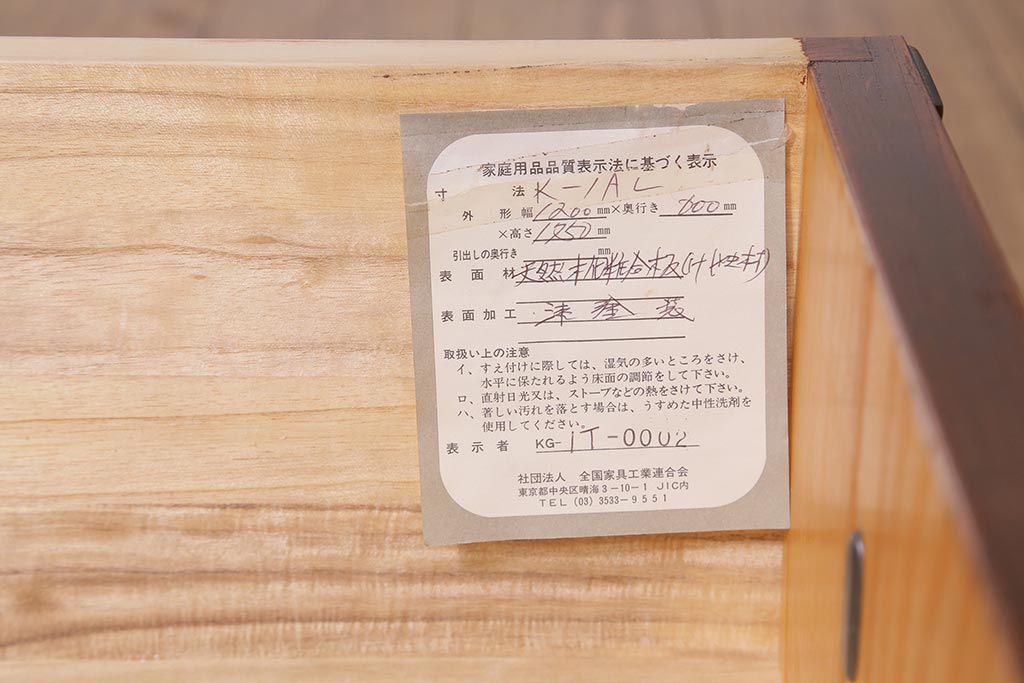 家庭用品品質表示法に基づく表示
寸法 K-1AL
外形幅 1200 mm×奥行き 600 mm
×高さ 1250 mm
引出しの奥行き mm
表面材 天然木化粧合板(けやき材)
表面加工 漆塗装
取扱い上の注意
イ、すえ付けに際しては、湿気の多いところをさけ、
水平に保たれるよう床面の調節をして下さい。
ロ、直射日光又は、ストーブなどの熱をさけて下さい。
ハ、著しい汚れを落とす場合は、うすめた中性洗剤を
使用してください。
表示者 KG-iT-0002
社団法人 全国家具工業連合会
東京都中央区晴海3-10-1 JIC内
TEL (03) 3533-9551